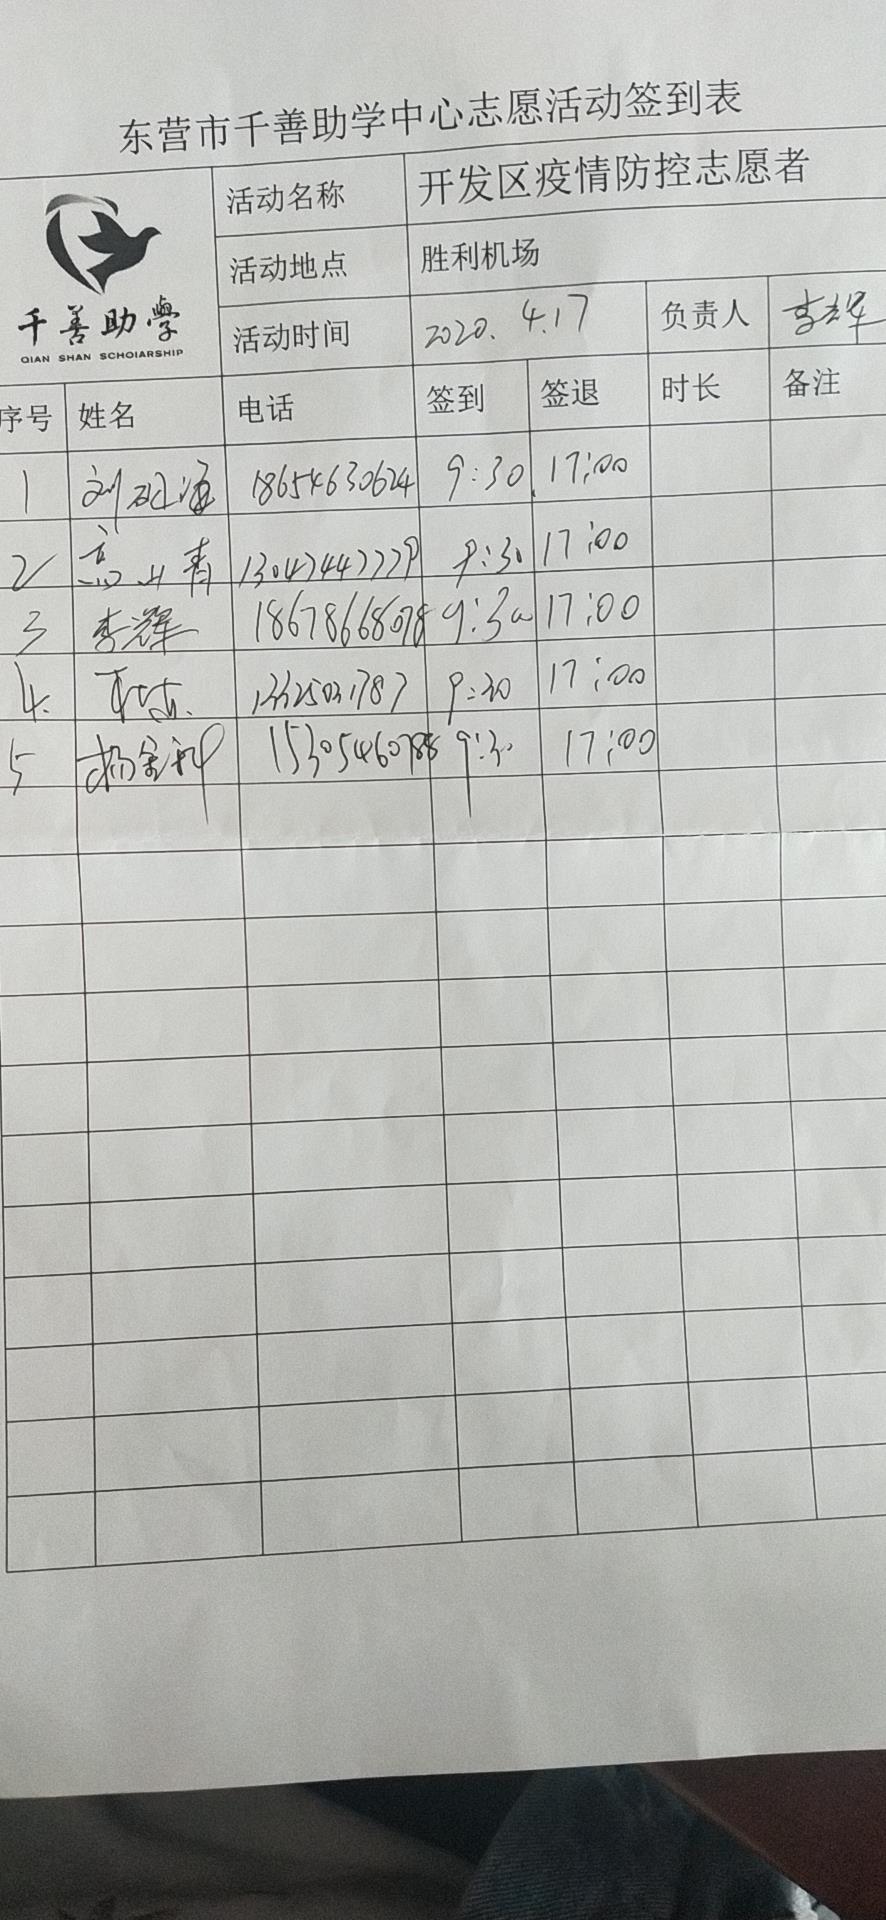 东营市千善助学中心志愿活动签到表
千善助學
QIAN SHAN SCHOIARSHIP
活动名称 开发区疫情防控志愿者
活动地点 胜利机场
活动时间 2020. 4.17 负责人 李辉
序号 姓名 电话 签到 签退 时长 备注
1 刘 海 18654630624 9:30 17:00
2 高 青 9:30 17:00
3 李辉 18678668078 9:30 17:00
4. 9:30 17:00
5 杨 15305460788 9:30 17:00